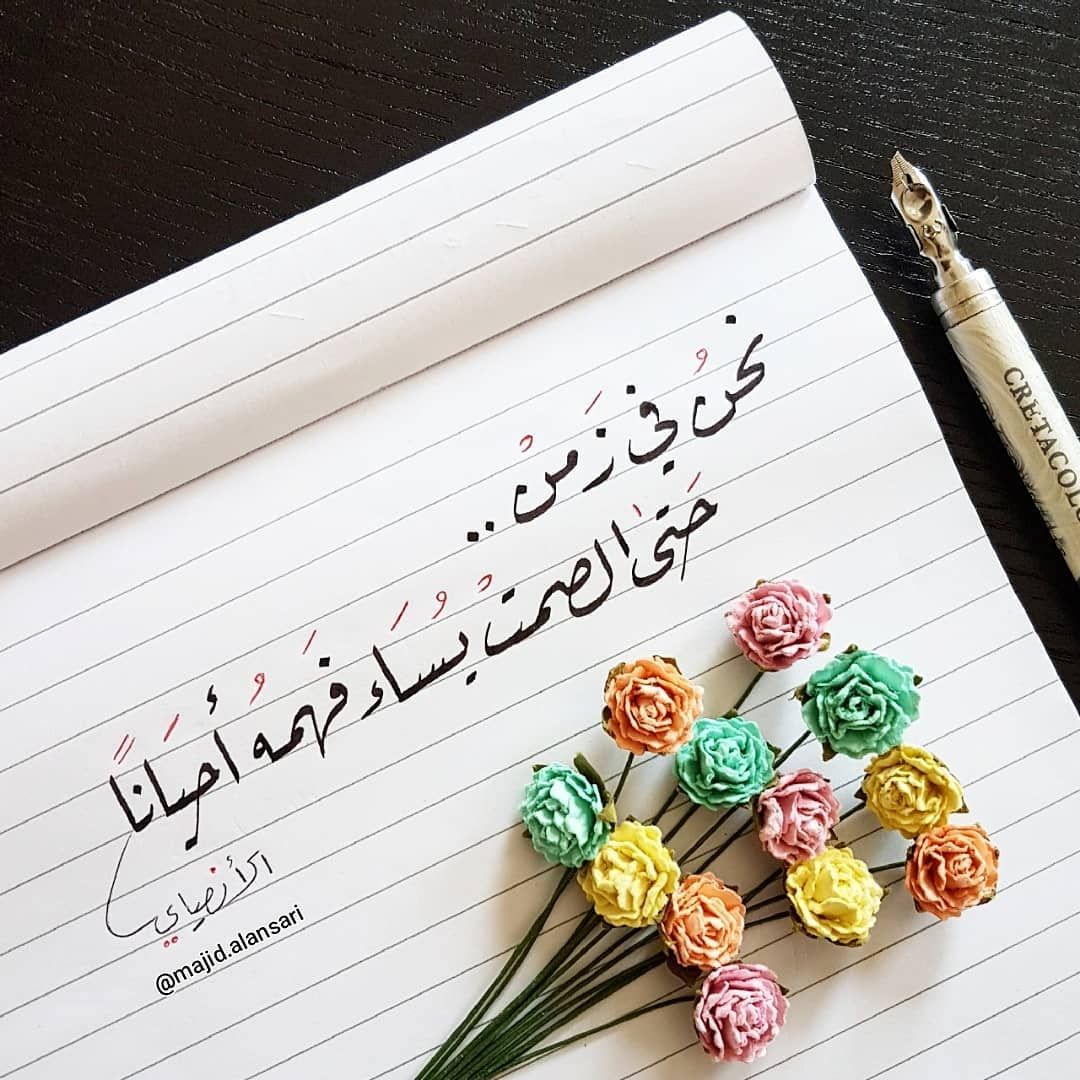 نحنُ في زَمنْ ..
حَتى الصمتُ يُسَاء فَهمهُ أحيَاناً
الأنصاري
@majid.alansari
CRETACOLO